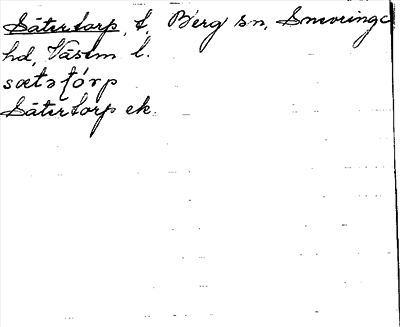 Sätertorp, t, Berg sn, Snevringe
hd, Västm l.
sætəʈórp
Sätertorp ek.